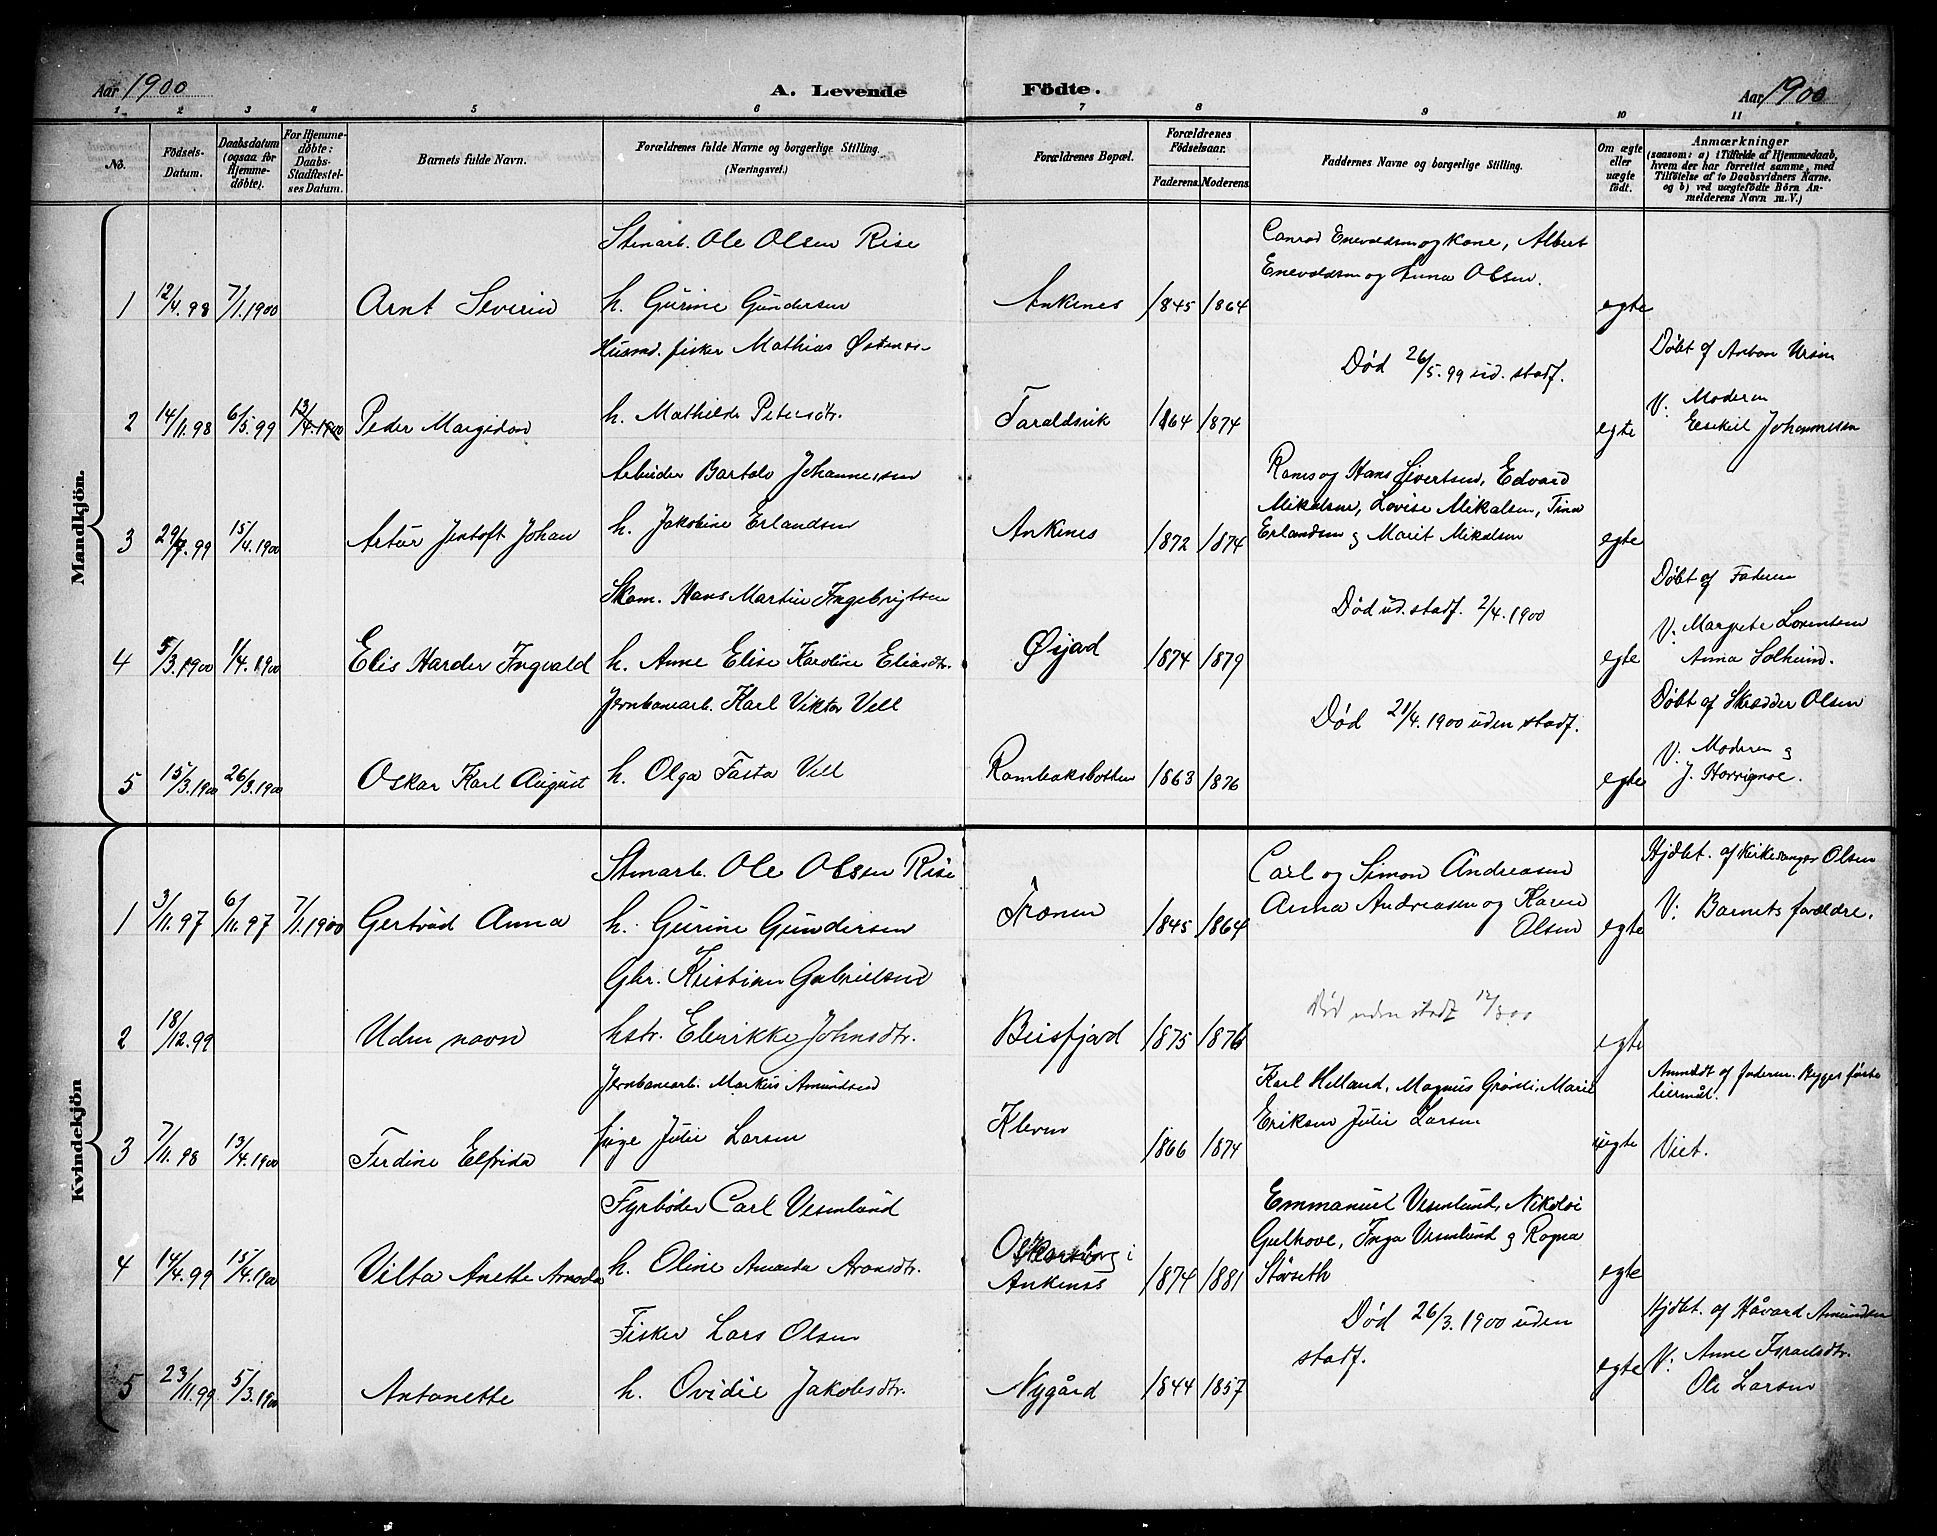 Aar 1900 A. Levende Födte. Aar 1900
1 2 3 4 5 6 7 8 9 10 11
No. Födsels-Datum. Daabsdatum (ogsaa för Hjemmedöbte). For Hjemmedöbte: Daabs-Stadfæstelses Datum. Barnets fulde Navn. Forældrenes fulde Navne og borgerlige Stilling. (Næringsvei.) Forældrenes Bopæl. Forældrenes Födselsaar. Faderens. Moderens. Faddernes Navne og borgerlige Stilling. Om ægte eller uægte födt. Anmærkninger (saasom: a) i Tilfælde af Hjemmedaab, hvem der har forrettet samme, med Tilföielse af to Daabsvidners Navne, og b) ved uægtefödte Börn Anmelderens Navn m. V.)
Mandkjön.
Stenarb. Ole Olsen Rise Conrad Enevoldsen og Kone, Albert
Enevoldsen og Anna Olsen.
1 12/4.98 7/1.1900 Arnt Severin h. Gurine Gundersen Ankenes 1845 1864 egte
Husmd. fisker Mathias Død 26/5.99 ud. stadf. Døbt af Ursin
2 14/11.98 6/5.99 13/4.1900 Peder Margido h. Mathilde Petersdtr. Taraldsvik 1864 1874 egte V: Moderen
Esekiel Johannesen
Arbeider Bartols Johannessen Hans Sivertsen, Edvard
Mikalsen, Lovise Mikalsen, Tina
3 29/7.99 15/4.1900 Artur Jentoft Johan h. Jakobine Erlandsen Ankenes 1872 1874 Erlandsen og Marit Mikalsen egte
Skom. Hans Martin Ingebrigtsen Død ud. stadf. 2/4.1900 Døbt af Faderen
4 5/3.1900 1/4.1900 Elis Harder Ingvald h. Anne Elise Karoline Eliasdtr. Øijord 1874 1879 egte V: Margrete Lorentsen
Anna Solheim.
Jernbanearb. Karl Viktor Vell Død 21/4.1900 uden stadf. Døbt af Skrædder Olsen
5 15/3.1900 26/3.1900 Oskar Karl August h. Olga Fasta Vell Rombaksbotten 1863 1876 egte V: Moderen og
J.
Kvindekjön
Stenarb. Ole Olsen Rise Carl og Simon Andreasen Hjdbt. af Kirkesanger Olsen
1 3/11.97 6/11.97 7/1.1900 Gertrud Anna h. Gurine Gundersen Trænen 1845 1864 Anna Andreasen og Karen
Olsen egte V: Barnets forældre.
Gbr. Kristian Gabrielsen Død uden stadf
2 18/12.99 Uden navn hstr. Elenrikke Johnsdtr. Beisfjord 1875 1876 egte
Jernbanearb. Markus Amundsen Karl Helland, Magnus Grøsli, Marie Anmeldt af faderen. Begges første
leiermål.
3 7/11.98 13/4.1900 Ferdine Elfrida pige Julie Larsen Kleven 1866 1874 Eriksen Julie Larsen uegte Viet.
Fyrbøder Carl Vesenlund Emmanuel Vesenlund, Nikolai
Gulhove, Inga Vesenlund og Ragna
4 14/4.99 15/4.1900 Vilta Anette h. Oline Amanda Aronsdtr. Oskarsborg i
Ankenes 1874 1881 Størseth egte
Fisker Lars Olsen Død 26/3.1900 uden
stadf. Hjdbt. af Håvard Amundsen
5 23/11.99 5/3.1900 Antonette h. Ovidie Jakobsdtr. Nygård 1844 1857 egte V: Anne Israelsdtr.
Ole Larsen